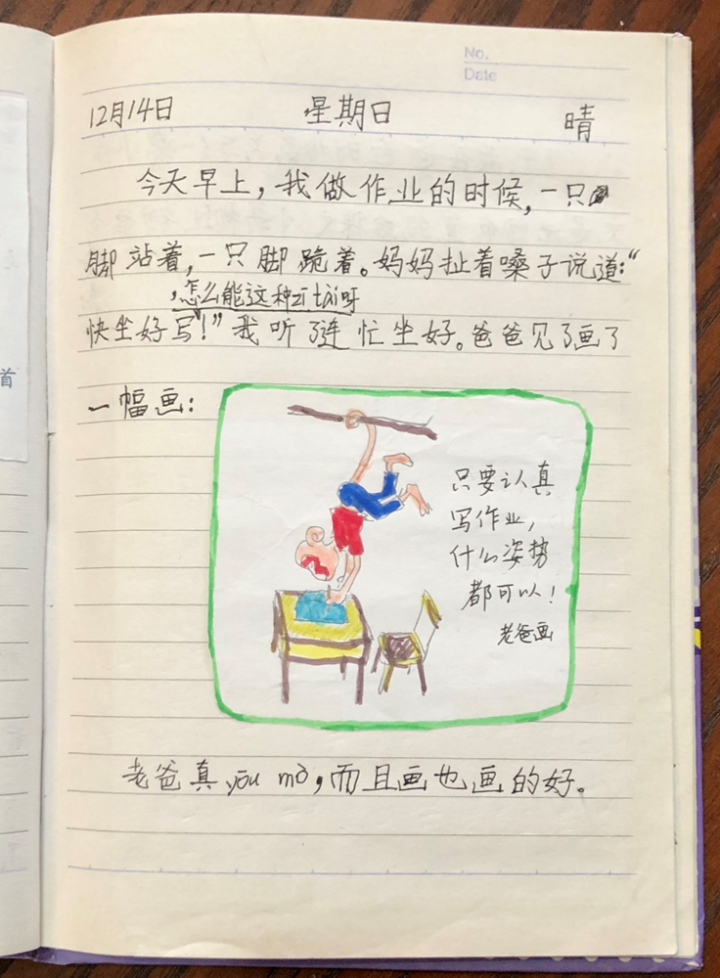 No.
Date
12月14日 星期日 晴
今天早上，我做作业的时候，一只
脚站着，一只脚跪着。妈妈扯着嗓子说道：“
，怎么能这种zī tài呀
快坐好写！”我听了连忙坐好。爸爸见了画了
一幅画：
只要认真
写作业，
什么姿势
都可以！
老爸画
老爸真yōu mò，而且画也画的好。
首